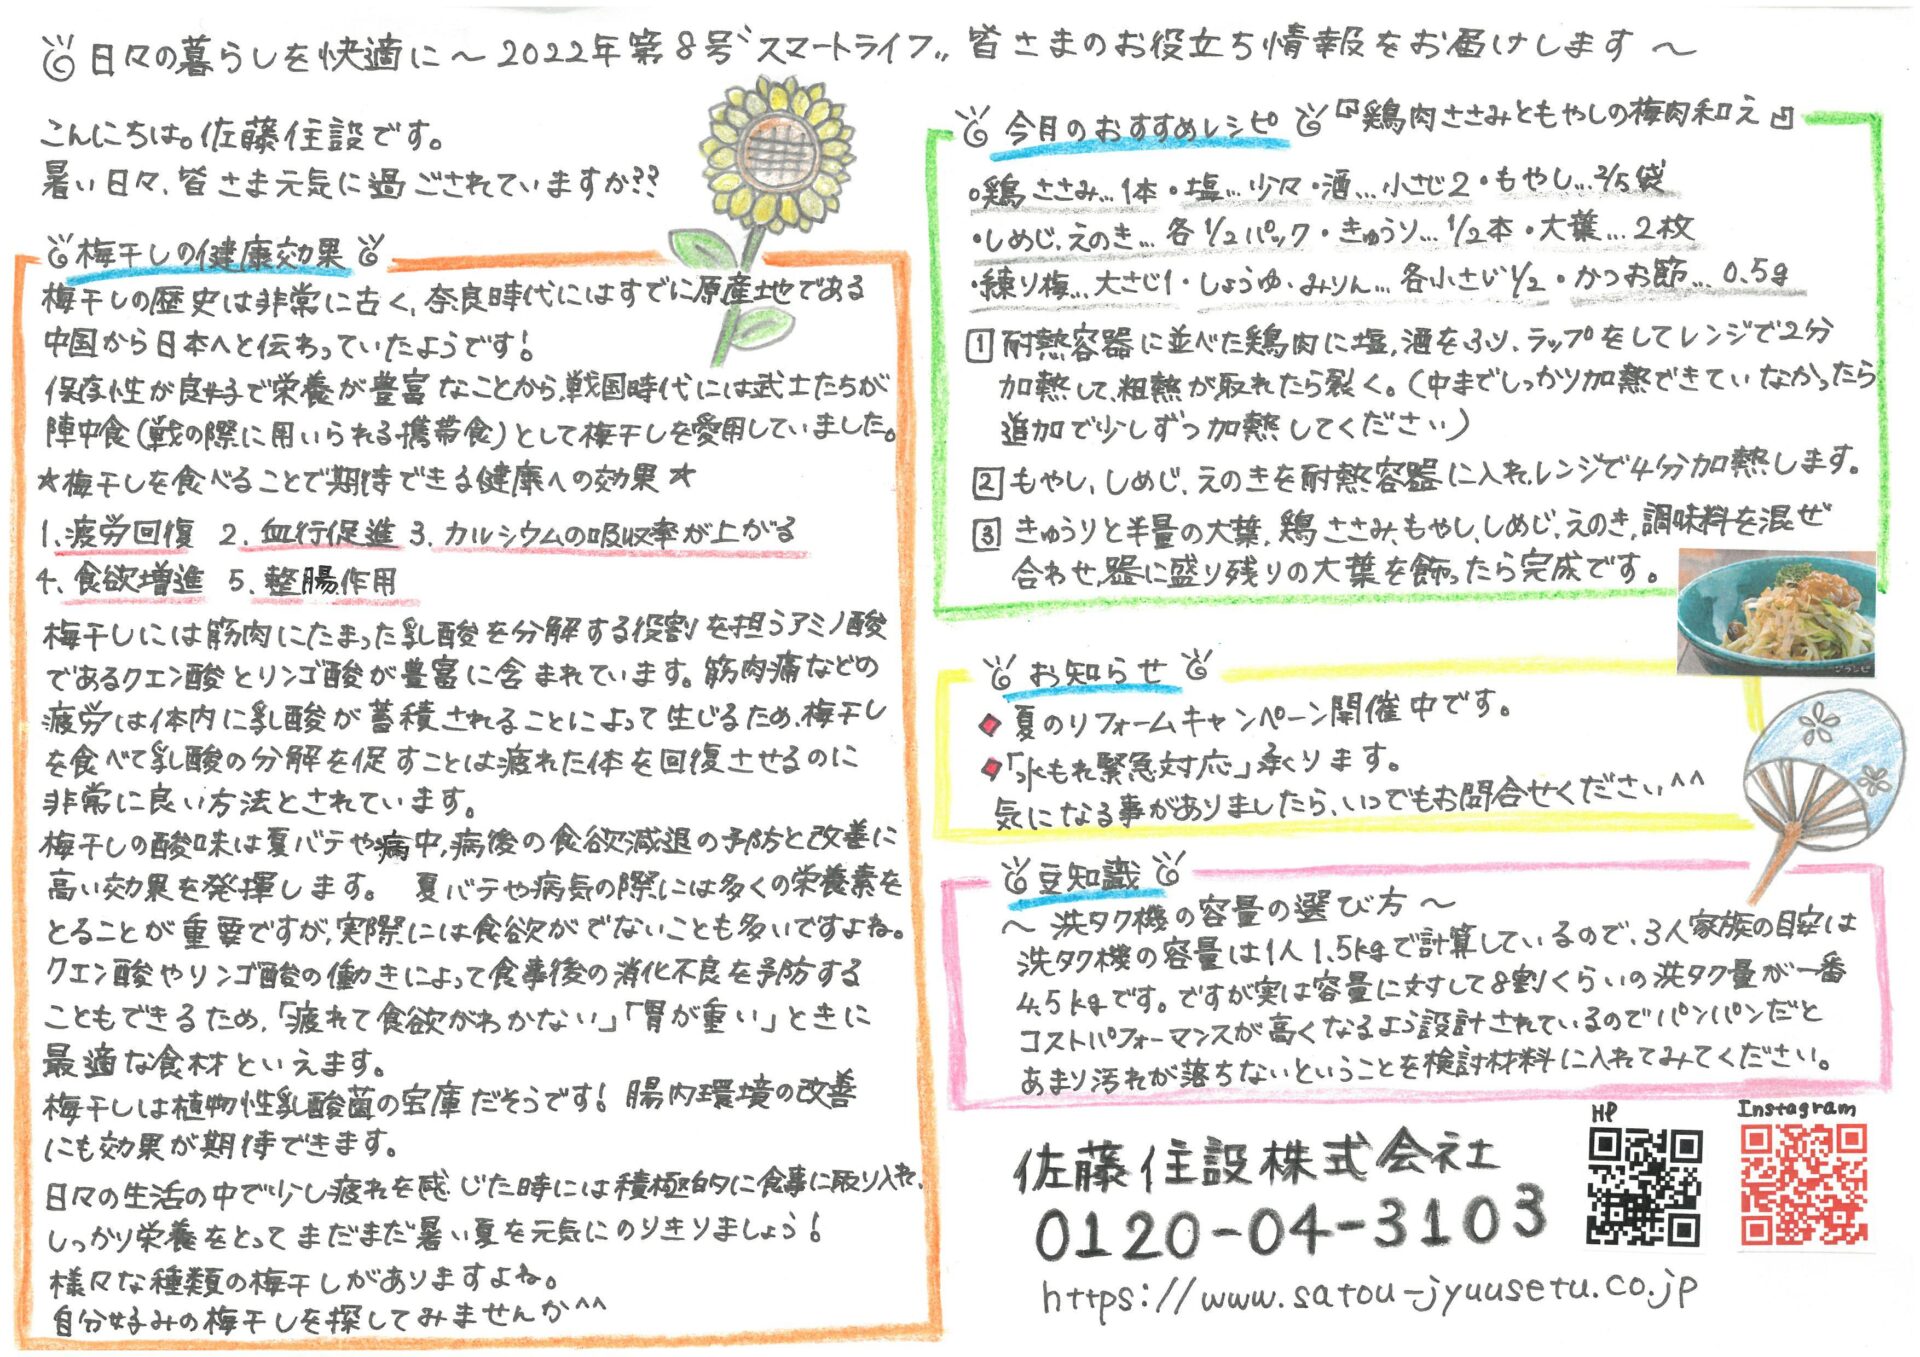 日々の暮らしを快適に～2022年第8号〝スマートライフ〟皆さまのお役立ち情報をお届けします～
こんにちは。佐藤住設です。
暑い日々、皆さま元気に過ごされていますか??
梅干しの健康効果
梅干しの歴史は非常に古く、奈良時代にはすでに原産地である
中国から日本へと伝わっていたようです！
保存性が良好で栄養が豊富なことから、戦国時代には武士たちが
陣中食(戦の際に用いられる携帯食)として梅干しを愛用していました。
★梅干しを食べることで期待できる健康への効果★
1.疲労回復 2.血行促進 3.カルシウムの吸収率が上がる
4.食欲増進 5.整腸作用
梅干しには筋肉にたまった乳酸を分解する役割を担うアミノ酸
であるクエン酸とリンゴ酸が豊富に含まれています。筋肉痛などの
疲労は体内に乳酸が蓄積されることによって生じるため、梅干し
を食べて乳酸の分解を促すことは疲れた体を回復させるのに
非常に良い方法とされています。
梅干しの酸味は夏バテや病中、病後の食欲減退の予防と改善に
高い効果を発揮します。 夏バテや病気の際には多くの栄養素を
とることが重要ですが、実際には食欲がでないことも多いですよね。
クエン酸やリンゴ酸の働きによって食事後の消化不良を予防する
こともできるため、「疲れて食欲がわかない」「胃が重い」ときに
最適な食材といえます。
梅干しは植物性乳酸菌の宝庫だそうです！腸内環境の改善
にも効果が期待できます。
日々の生活の中で少し疲れを感じた時には積極的に食事に取り入れ、
しっかり栄養をとってまだまだ暑い夏を元気にのりきりましょう！
様々な種類の梅干しがありますよね。
自分好みの梅干しを探してみませんか^^
今月のおすすめレシピ 『鶏肉ささみともやしの梅肉和え』
・鶏ささみ…1体・塩…少々・酒…小さじ2・もやし…2/5袋
・しめじ、えのき…各1/2パック・きゅうり…1/2本・大葉…2枚
・練り梅…大さじ1・しょうゆ・みりん…各小さじ1/2・かつお節…0.5g
1 耐熱容器に並べた鶏肉に塩、酒をふり、ラップをしてレンジで2分
加熱して、粗熱が取れたら裂く。(中までしっかり加熱できていなかったら
追加で少しずつ加熱してください)
2 もやし、しめじ、えのきを耐熱容器に入れ、レンジで4分加熱します。
3 きゅうりと半量の大葉、鶏ささみ、もやし、しめじ、えのき、調味料を混ぜ
合わせ、器に盛り残りの大葉を飾ったら完成です。
お知らせ
◆夏のリフォームキャンペーン開催中です。
◆「水もれ緊急対応」承ります。
気になる事がありましたら、いつでもお問合せください^^
豆知識
～洗タク機の容量の選び方～
洗タク機の容量は1人1.5kgで計算しているので、3人家族の目安は
4.5kgです。ですが実は容量に対して8割くらいの洗タク量が一番
コストパフォーマンスが高くなるよう設計されているのでパンパンだと
あまり汚れが落ちないということを検討材料に入れてみてください。
HP
Instagram
佐藤住設株式会社
0120-04-3103
https://www.satou-jyuusetu.co.jp